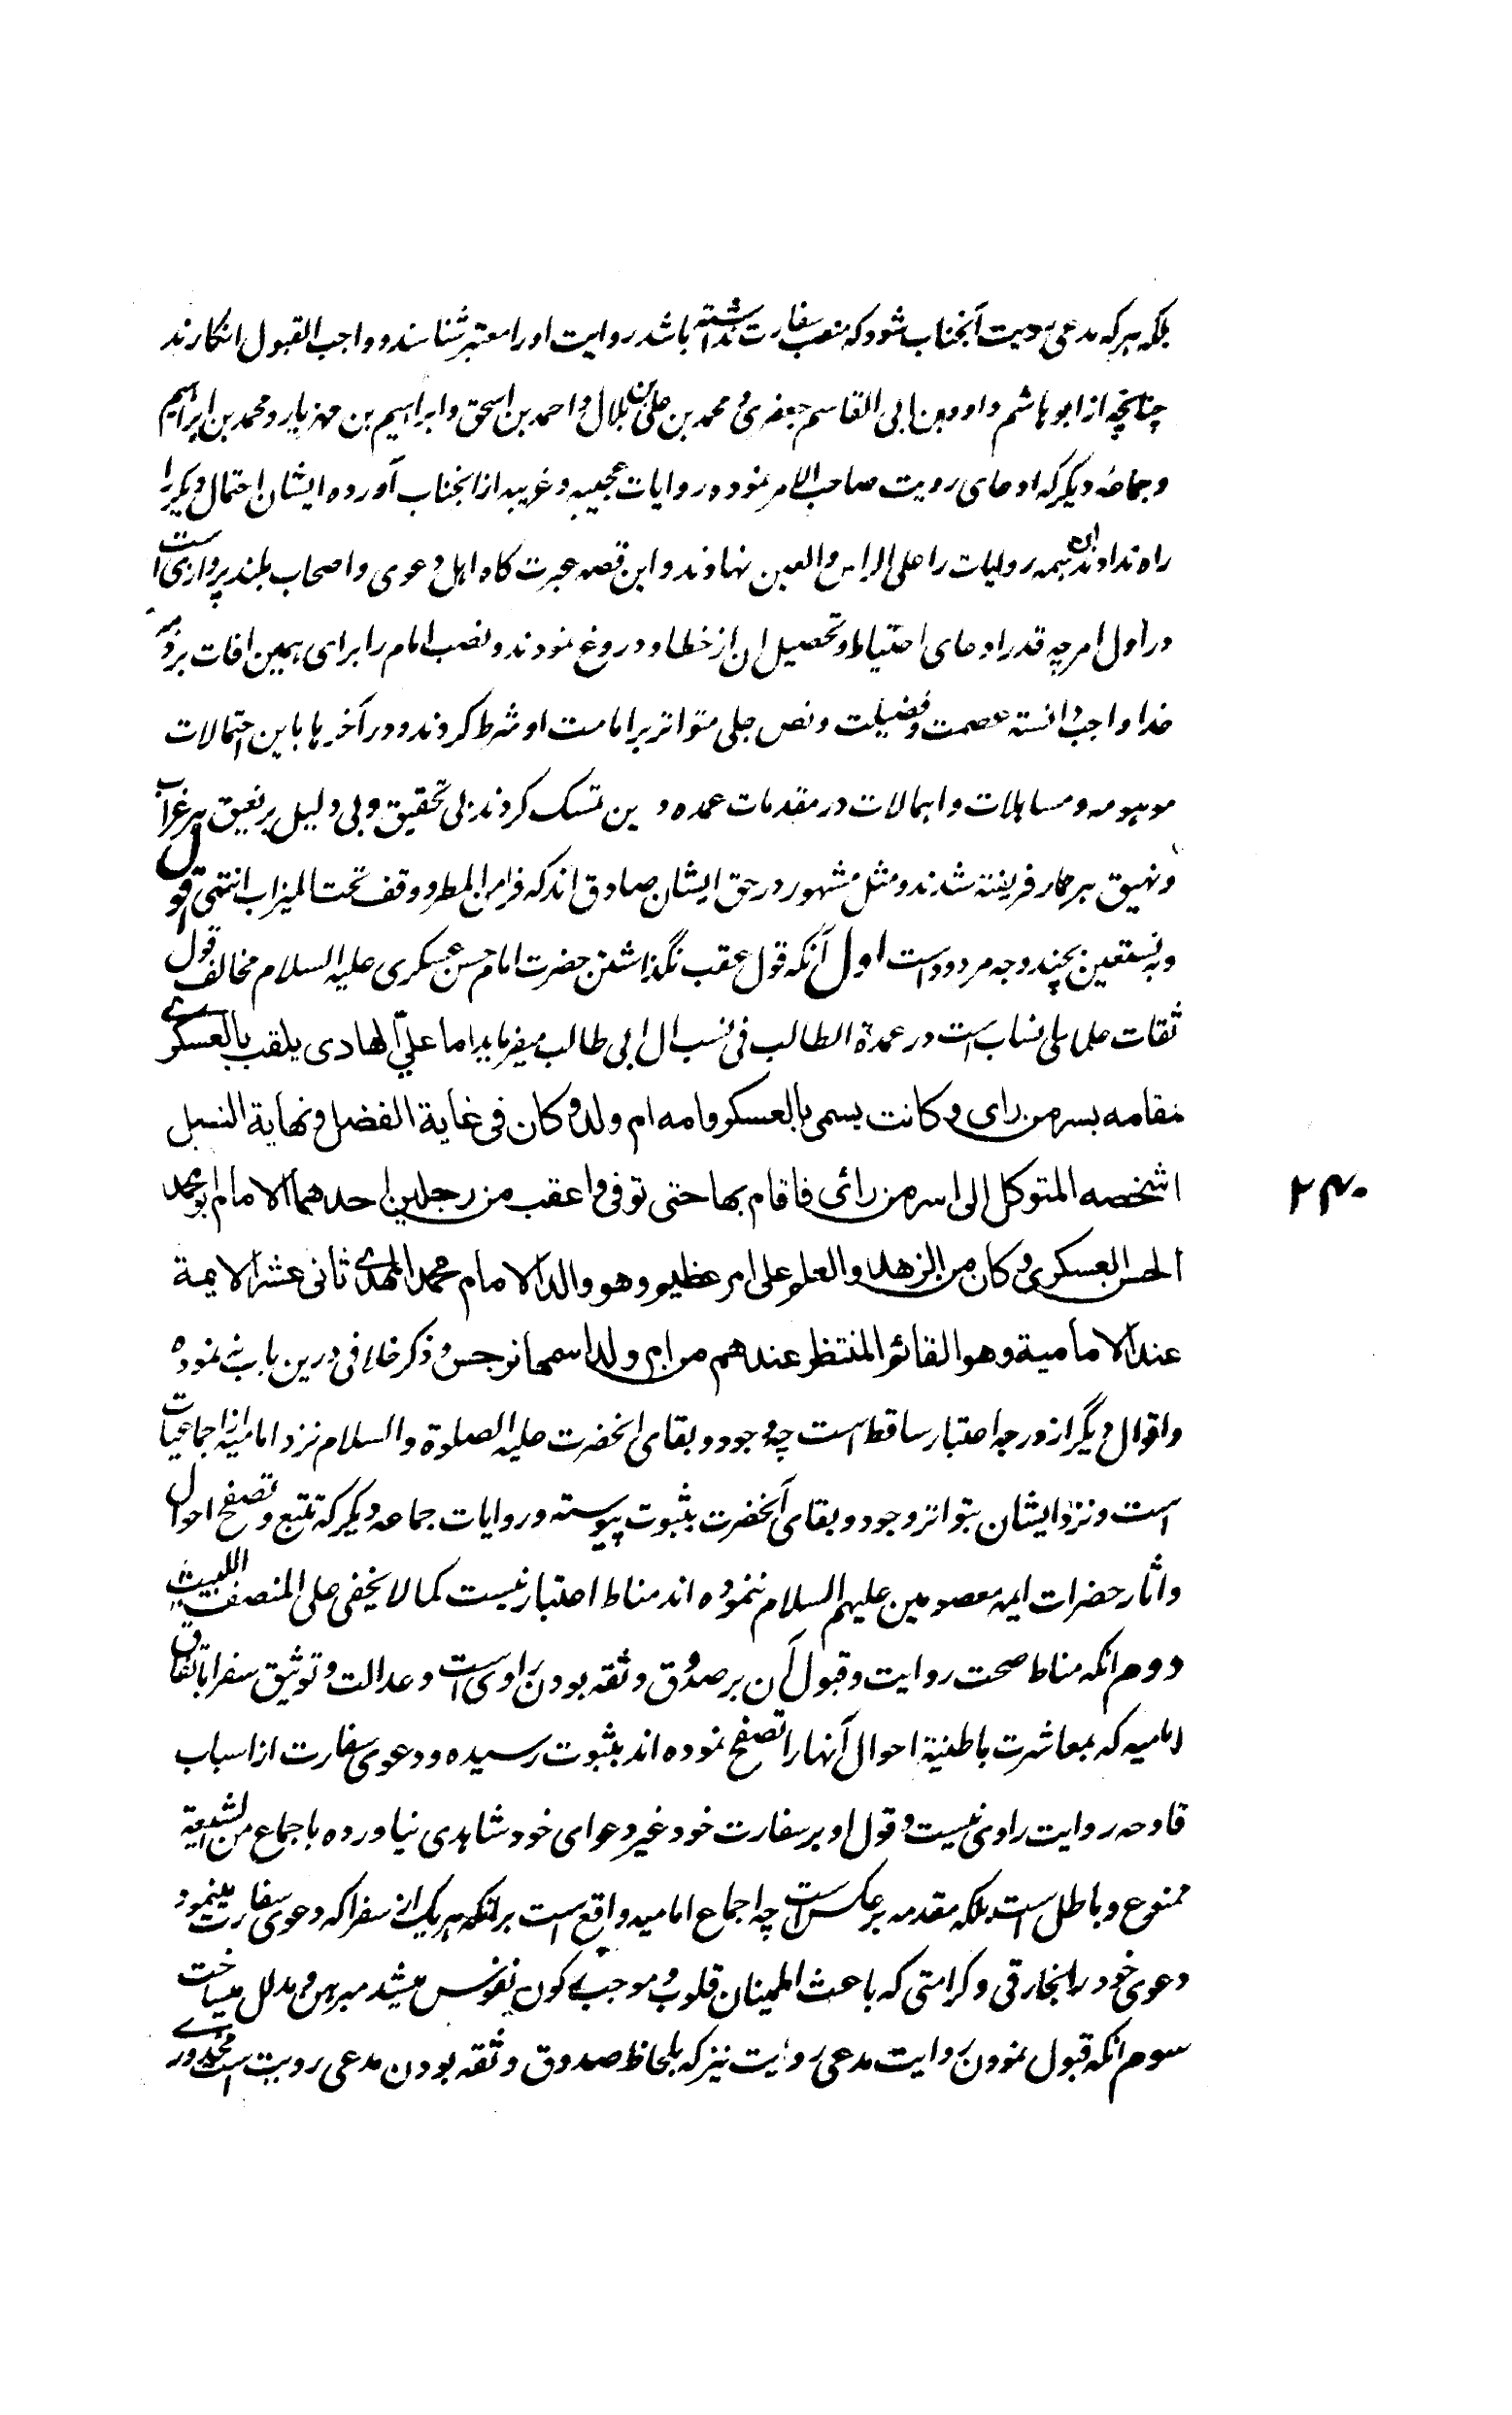 بلکه هرکه مدعی رویت آنجناب شود که منصب سفارت نداشته باشد روایت اورا معتبر شناسند و واجب القبول انکارند
چنانچه از ابو هاشم داود بن ابی القاسم جعفری و محمد بن علی بن بلال و احمد بن اسحق و ابراهیم بن مهزیار و محمد بن ابراهیم
و جماعه دیگر که ادعای رویت صاحب الامر نموده روایات عجیبه و غریبه از انجناب آورده ایشان احتمال دیگر را
راه ندادند همه روایات را علی الراس والعین نهادند و این قصه عبرت کاه اهل دعوی و اصحاب بلند پروازی است
در اول امر چه قدر ادعای احتیاط و تحصیل ان از خطا و دروغ نمودند و نصب امام را برای همین افات بر ذمه
خدا واجب دانسته عصمت و فضیلت و نص جلی متواتر بر امامت او شرط کردند و در آخر ها باین احتمالات
موهومه و مساهلات و اهمالات در مقدمات عمده دین تمسک کردند بی تحقیق و بی دلیل بر نعیق هر غراب
و نهیق هر حمار فریفته شدند و مثل مشهور در حق ایشان صادق اند که فر من المطر و وقف تحت المیزاب انتهی اقول
وبه نستعین بچند وجه مردود است اول آنکه قول عقب نگذاشتن حضرت امام حسن عسکری علیه السلام مخالف قول
ثقات علمای انساب است در عمدة الطالب فی نسب ال ابی طالب میفرماید اما علیّ الهادی یلقب بالعسکری
لمقامه بسر من رای و کانت یسمی بالعسکر وامه ام ولد و کان فی غایة الفضل و نهایة النبل
اشخصه المتوکل الی اسر من رائی فاقام بها حتی توفی و اعقب من رجلین احدهما الامام ابو محمد
الحسن العسکری و کان من الزهد والعلم علی امر عظیم وهو والد الامام محمد المهدی ثانی عشر الایمة
۲۴۰
عند الامامیة وهو القائم المنتظر عندهم من ام ولد اسمها نرجس و ذکر خلافی درین باب ننموده
و اقوال دیگر از درجه اعتبار ساقط است چه وجود و بقای انحضرت علیه الصلوة والسلام نزد امامیه از اجماعیات
است و نزد ایشان بتواتر وجود و بقای آنحضرت بثبوت پیوسته و روایات جماعه دیگر که تتبع و تصفح احوال
و اثار حضرات ایمه معصومین علیهم السلام ننموده اند مناط اعتبار نیست کما لا یخفی علی المنصف اللبیب
دوم انکه مناط صحت روایت و قبول آن بر صدوق و ثقه بودن راوی است و عدالت و توثیق سفرا باتفاق
امامیه که بمعاشرت باطنیة احوال آنها را تصفح نموده اند بثبوت رسیده و دعوی سفارت از اسباب
قادحه روایت راوی نیست و قول او بر سفارت خود غیر دعوای خود شاهدی نیاورده باجماع من الشیعة
ممنوع و باطل است بلکه مقدمه بر عکس است چه اجماع امامیه واقع است بر انکه هر یک از سفرا که دعوی سفارت مینمود
دعوی خود را بخارقی و کرامتی که باعث اطمینان قلوب و موجب سکون نفوس میشد مبرهن و مدلل میساخت
سوم انکه قبول نمودن روایت مدعی رویت نیز که بلحاظ صدوق و ثقه بودن مدعی رویت است محذوری